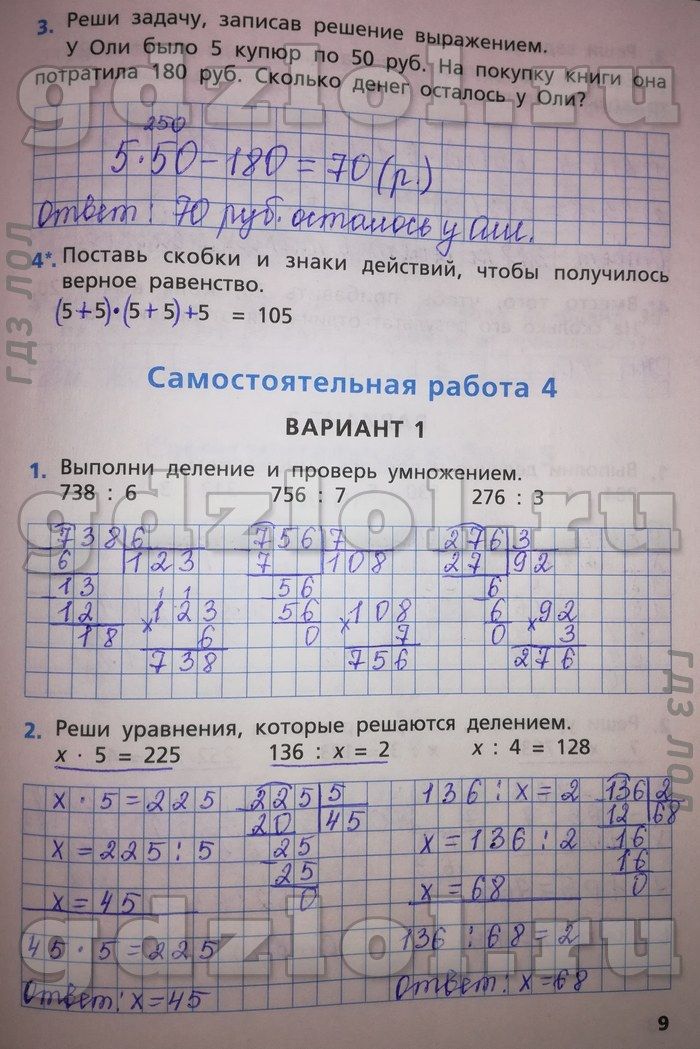 3. Реши задачу, записав решение выражением.
У Оли было 5 купюр по 50 руб. На покупку книги она
потратила 180 руб. Сколько денег осталось у Оли?
250
5·50-180=70(р.)
Ответ: 70 руб. осталось у Оли.
4*. Поставь скобки и знаки действий, чтобы получилось
верное равенство.
(5+5)·(5+5)+5 = 105
Самостоятельная работа 4
ВАРИАНТ 1
1. Выполни деление и проверь умножением.
738 : 6 756 : 7 276 : 3
738 6 756 7 276 3
6 123 7 108 27 92
13 56 6
12 1 1 123 56 108 6 92
18 × 6 0 × 7 0 × 3
738 756 276
2. Реши уравнения, которые решаются делением.
x · 5 = 225 136 : x = 2 x : 4 = 128
x · 5 = 225 225 5 136 : x = 2 136 2
20 45 12 68
x = 225 : 5 25 x = 136 : 2 16
25 16
x = 45 0 x = 68 0
45 · 5 = 225 136 : 68 = 2
Ответ: x = 45 Ответ: x = 68
9
gdzlol.ru
gdzlol.ru
gdzlol.ru
гдз лол
гдз лол